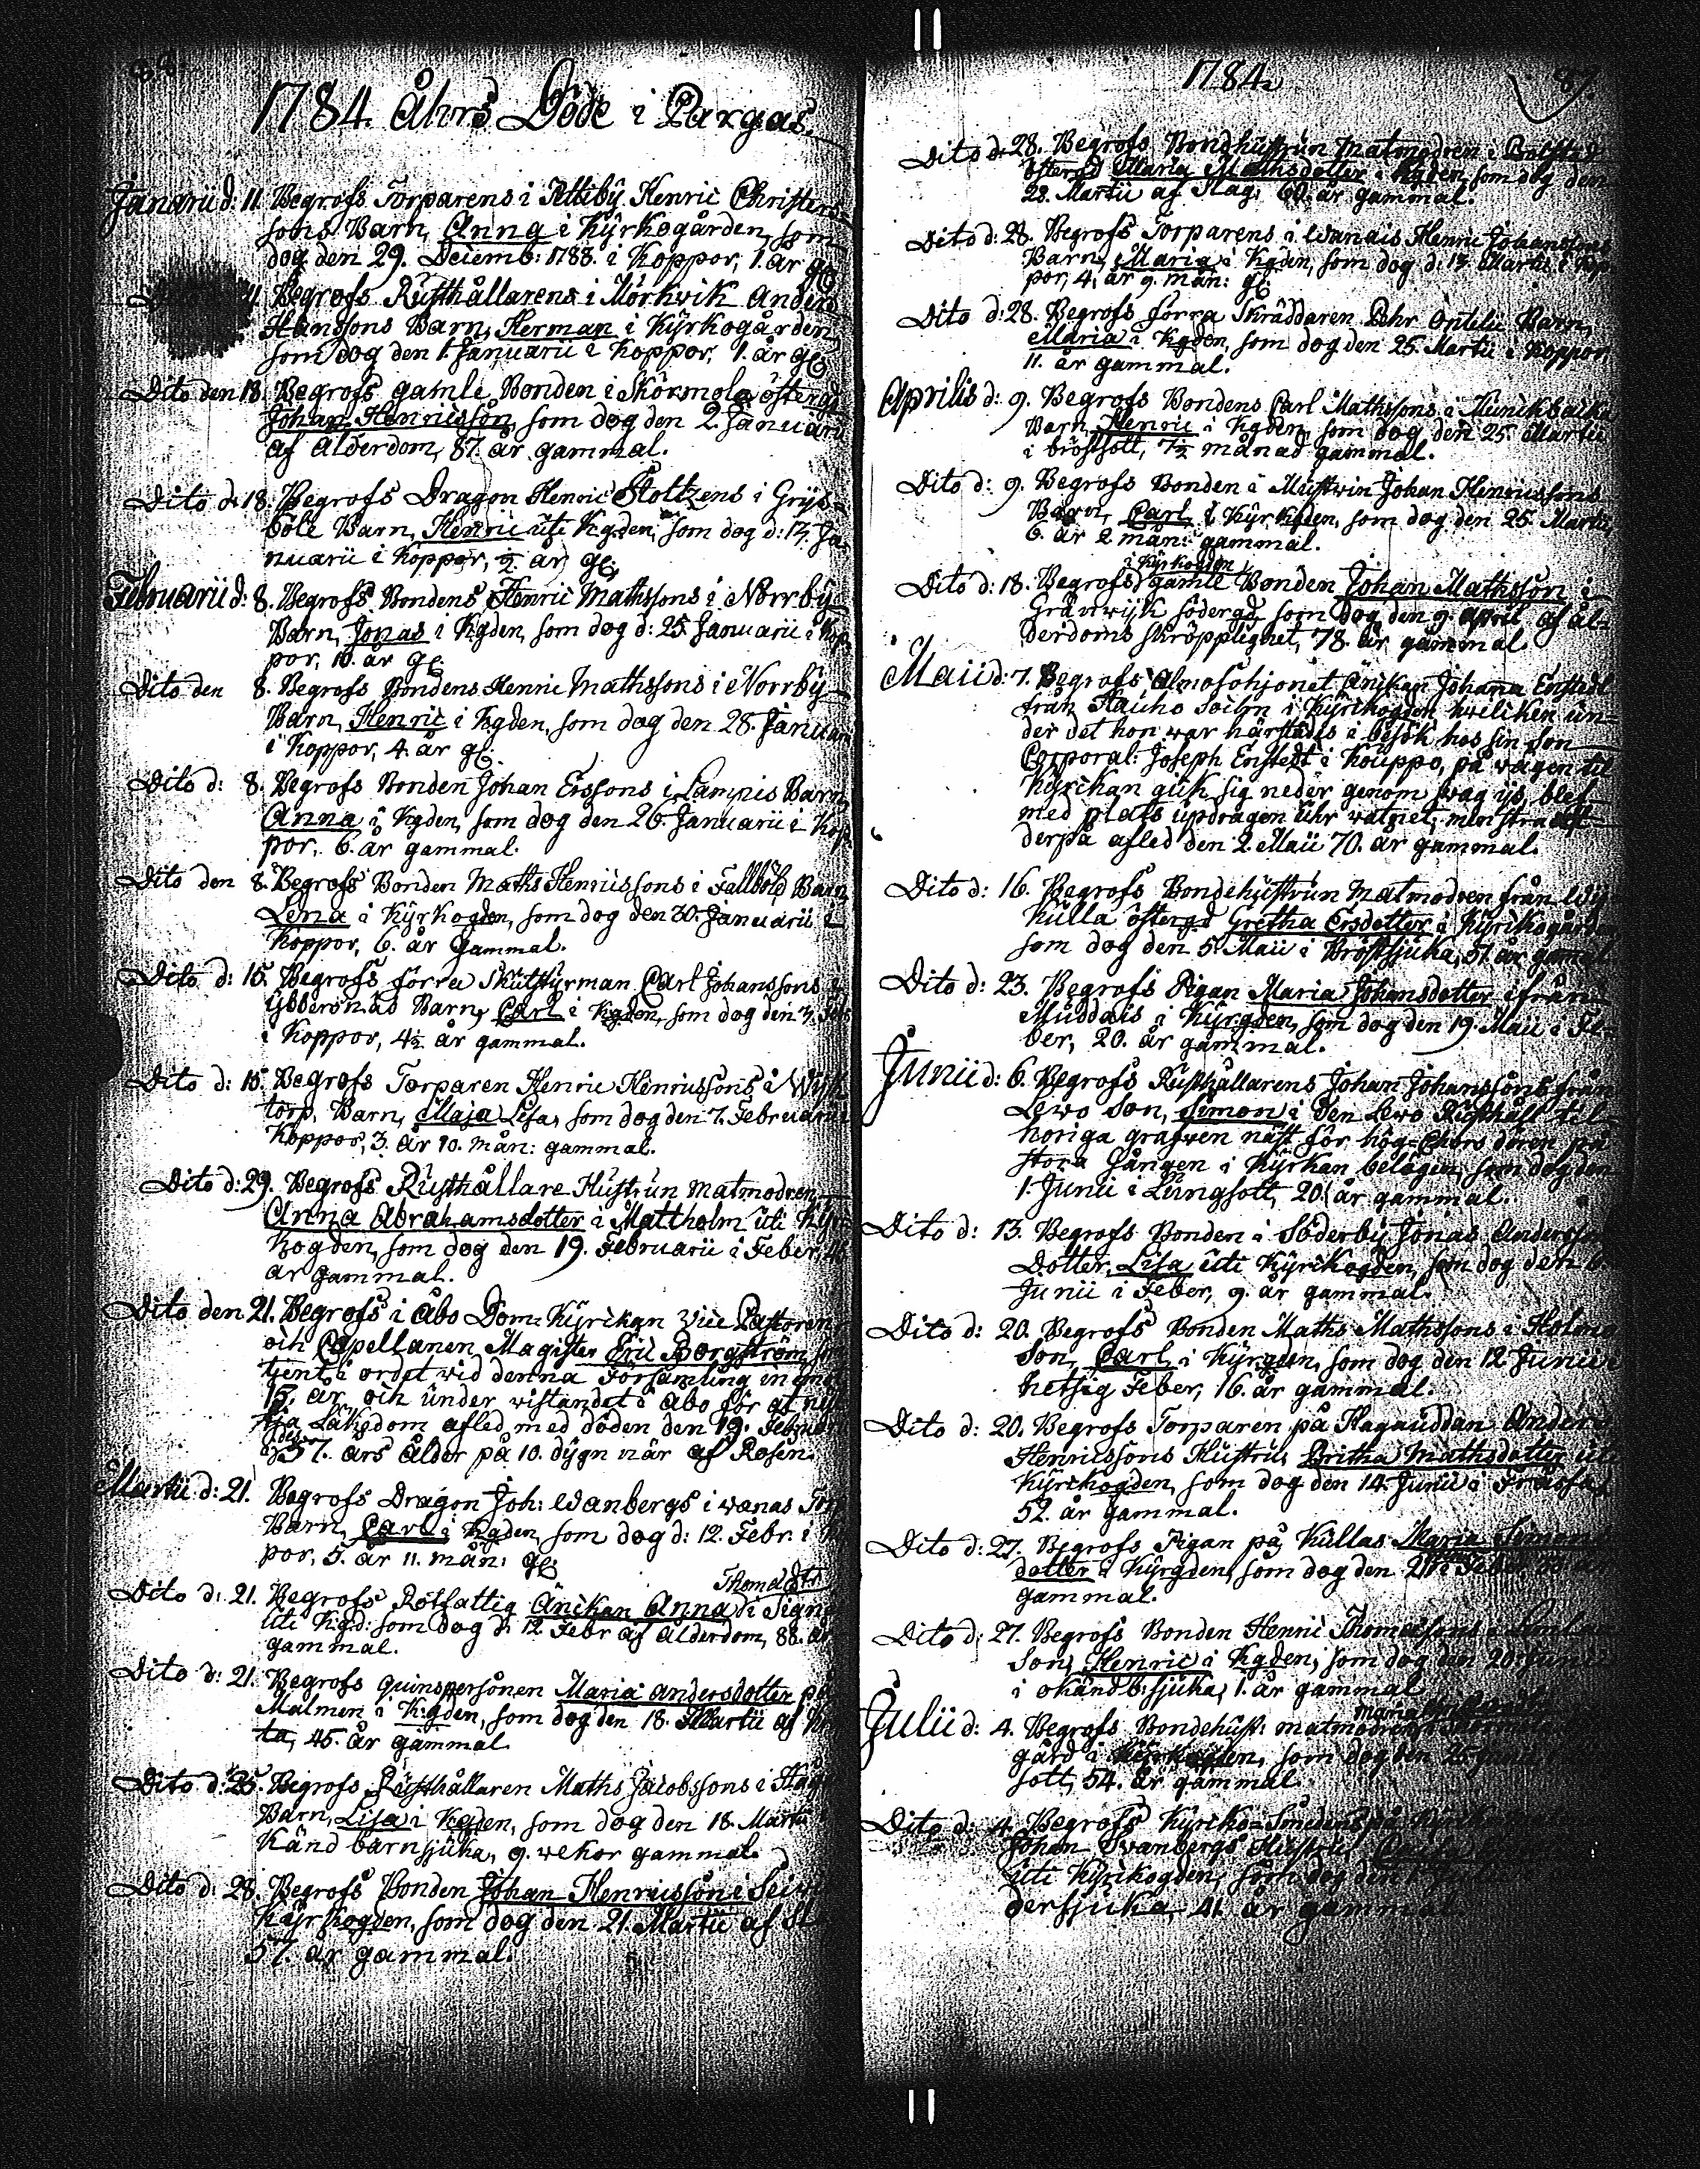 1784. Åhrs Döde i Pargas.
Januarii d: 11. Begrofs Torparens i Pettiby Henric Christers
sons Barn, Anna i Kyrkogården, som
dog den 29. Decemb: 1783. i Koppor, 1. år gl.
11. Begrofs Rusthållarens i Mörkvik Anders
Hanssons Barn, Herman i Kyrkogården,
som dog den 1. Januarii i Koppor, 1. år gl.
Dito den 18. Begrofs gamle Bonden i Skörmola östergd
Johan Henricsson, som dog den 2. Januarii
af Ålderdom, 87. år gammal.
Dito d: 18. Begrofs Dragon Henric Stoltzens i Grÿs-
böle Barn, Henric uti Kgden, som dog d: 13. Ja-
nuarii i Koppor, ½ år gl.
Februarii d: 8. Begrofs Bondens Henric Mathssons i Norrby
Barn, Jonas i Kgden, som dog d: 25. Januarii i Kop-
por, 10. år gl.
Dito den 8. Begrofs Bondens Henric Mathssons i Norrby
Barn, Henric i Kgden, som dog den 28. Januarii
i Koppor, 4. år gl.
Dito d: 8. Begrofs Bonden Johan Erssons i Lampis Barn,
Anna i Kgden, som dog den 26. Januarii i Kop-
por, 6. år gammal.
Dito den 8. Begrofs Bonden Maths Henricssons i Fallböle Barn,
Lena i Kyrkogden, som dog den 30. Januarii i
Koppor, 6. år gammal.
Dito d: 15. Begrofs förra Skutstyrman Carl Johanssons i
Ybbersnäs Barn, Carl i Kgden, som dog den 3. Feb
i Koppor, 4½ år gammal.
Dito d: 15. Begrofs Torparen Henric Henricssons i
torp. Barn, Maja Lisa, som dog den 7. Februarii i
Koppor, 3. år 10. mån: gammal.
Dito d: 29. Begrofs Rusthållare Hustrun matmodren
Anna Abrahamsdotter i Mattholm uti Kyr-
kogden, som dog den 19. Februarii i Feber,
år gammal.
Dito den 21. Begrofs i Åbo Dom-Kyrckan Vice Pastoren
och Capellanen Magister Eric Borgström, som
tjent i ordet wid denna Församling in emot
15. år, och under wistandet i Åbo för at nyt-
tja Läkedom afled med döden den 19. Februarii
57. års ålder på 10. dygn när af Rosen.
Martii d: 21. Begrofs Dragon Joh: Wanbergs i wanas
Barn, Carl i Kgden, som dog d: 12. Febr. i
por, 5. år 11. mån: gl.
Dito d: 21. Begrofs Rotfattig Änckan Anna Thomasdtr i
uti Kgd: som dog d: 12. Febr af Ålderdom, 88. år
gammal.
Dito d: 21. Begrofs quinspersonen Maria Andersdotter på
Malmen i Kgden, som dog den 18. Martii af
ta, 45. år gammal.
Dito d: 25. Begrofs Rusthållaren Maths Jacobssons i
Barn, Lisa i Kgden, som dog den 18. Martii
känd barnsjuka, 9. wekor gammal.
Dito d: 28. Begrofs Bonden Johan Henricsson i
Kyrkogden, som dog den 21. Martii af
57. år gammal.
1784. 87.
Dito d: 28. Begrofs Bondhustrun matmodren i
östergd Maria Mathsdotter i Kgden, som dog den
22. Martii af Slag, 60. år gammal.
Dito d: 28. Begrofs Torparens i Wanais Henric Johanssons
Barn, Maria i Kgden, som dog d: 13. Martii i Kop-
por, 4. år 9. mån: gl.
Dito d: 28. Begrofs förra Skräddaren Pehr Barn,
Maria i Kgden, som dog den 25. Martii i Koppor,
11. år gammal.
Aprilis d: 9. Begrofs Bondens Carl Mathssons i Munckbacka
Barn, Henric i Kgden, som dog den 25. Martii
i bröstsott, 7½ månad gammal.
Dito d: 9. Begrofs Bonden i Mustwin Johan Henricssons
Barn, Carl i Kyrkgden, som dog den 25. Martii,
6. år 2 mån: gammal.
Dito d: 18. Begrofs i Kyrkogden gamle Bonden Johan Mathsson i
söderg, som dog den 9. April af ål-
derdoms skröpplighet, 78. år gammal.
Maii d: 7. Begrofs Almosohjonet Änckan Johana Enstedt
från Kaucho sockn i Kyrckogden, hwilcken un-
der det hon war härstädes i besök hos sin son
Corporal: Joseph Enstedt i Kouppo, på wägen til
Kyrckan gick sig neder genom swag ijs, blef
med plats updragen uhr watnet, men straxt
derpå afled den 2. Maii 70. år gammal.
Dito d: 16. Begrofs Bondehustrun Matmodren från
Kulla östergd Gretha Ersdotter i Kyrckogården
som dog den 5. Maii i Bröstsjuka, 51. år gammal.
Dito d: 23. Begrofs Pigan Maria Johansdotter ifrån
Muddais i Kyrgden, som dog den 19. Maii i Fe-
ber, 20. år gammal.
Junii d: 6. Begrofs Rusthållarens Johan Johanssons från
Lewo Son, Simon i den Lewo Rusthåll til-
horiga grafwen näst för hög-Chors dören på
stora gången i Kyrkan belägen, som dog den
1. Junii i Lungsott, 20. år gammal.
Dito d: 13. Begrofs Bonden i Söderby Jonas Anderssons
Dotter, Lisa uti Kyrckogden, som dog den 6.
Junii i Feber, 9. år gammal.
Dito d: 20. Begrofs Bonden Maths Mathssons i Holma
Son, Carl i Kyrgden, som dog den 12. Junii i
hetsig Feber, 16. år gammal.
Dito d: 20. Begrofs Torparen på Hagauddan Anders
Henricssons Hustru, Britha Mathsdotter uti
Kyrckogden, som dog den 14. Junii i
52. år gammal.
Dito d: 27. Begrofs Pigan på Kullas Maria Simons
dotter i Kyrgden, som dog den
gammal.
Dito d: 27. Begrofs Bonden Henric Thomassons i
Son, Henric i Kgden, som dog den 20. Junii
i okänd b: sjuka, 1. år gammal
Julii d: 4. Begrofs Bondehust: matmodren Maria
gård i Kyrkogden, som dog den 25. Junii
sott, 54. år gammal
Dito d: 4. Begrofs Kyrcko-Smedens på
Johan Swanbergs Hustru,
uti Kyrckogden, som dog den
dersjuka, 41. år gammal